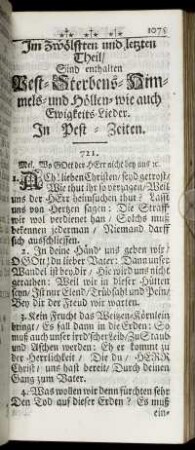 1075
Im Zwölfften und letzten
Theil/
Sind enthalten
Pest-Sterbens-Him-
mels- und Höllen- wie auch
Ewigkeits-Lieder.
In Pest-Zeiten.
721.
Mel. Wo GOtt der HErr nicht bey uns ꝛc.
1. ACh! lieben Christen/ seyd getrost/
Wie thut ihr so verzagen/ Weil
uns der HErr heimsuchen thut?
Laßt uns von Hertzen sagen: Die Straff
wir wol verdienet han/ Solchs muß
bekennen jederman/ Niemand darff
sich ausschliessen.
2. In deine Händ' uns geben wir/
O GOtt/ du lieber Vater: Dann unser
Wandel ist bey dir/ Hie wird uns nicht
gerathen: Weil wir in dieser Hütten
seyn/ Ist nur Elend/ Trübsahl und Pein/
Bey dir der Freud wir warten.
3. Kein Frucht das Weitzen-Körnlein
bringt/ Es fall dann in die Erden: So
muß auch unser irrdscher Leib/ Zu Staub
und Aschen werden: Eh er kommt zu
der Herrlichkeit/ Die du/ HERR
Christ/ uns hast bereit/ Durch deinen
Gang zum Vater.
4. Was wollen wir denn fürchten sehr
Den Tod auf dieser Erden? Es muß
ein-